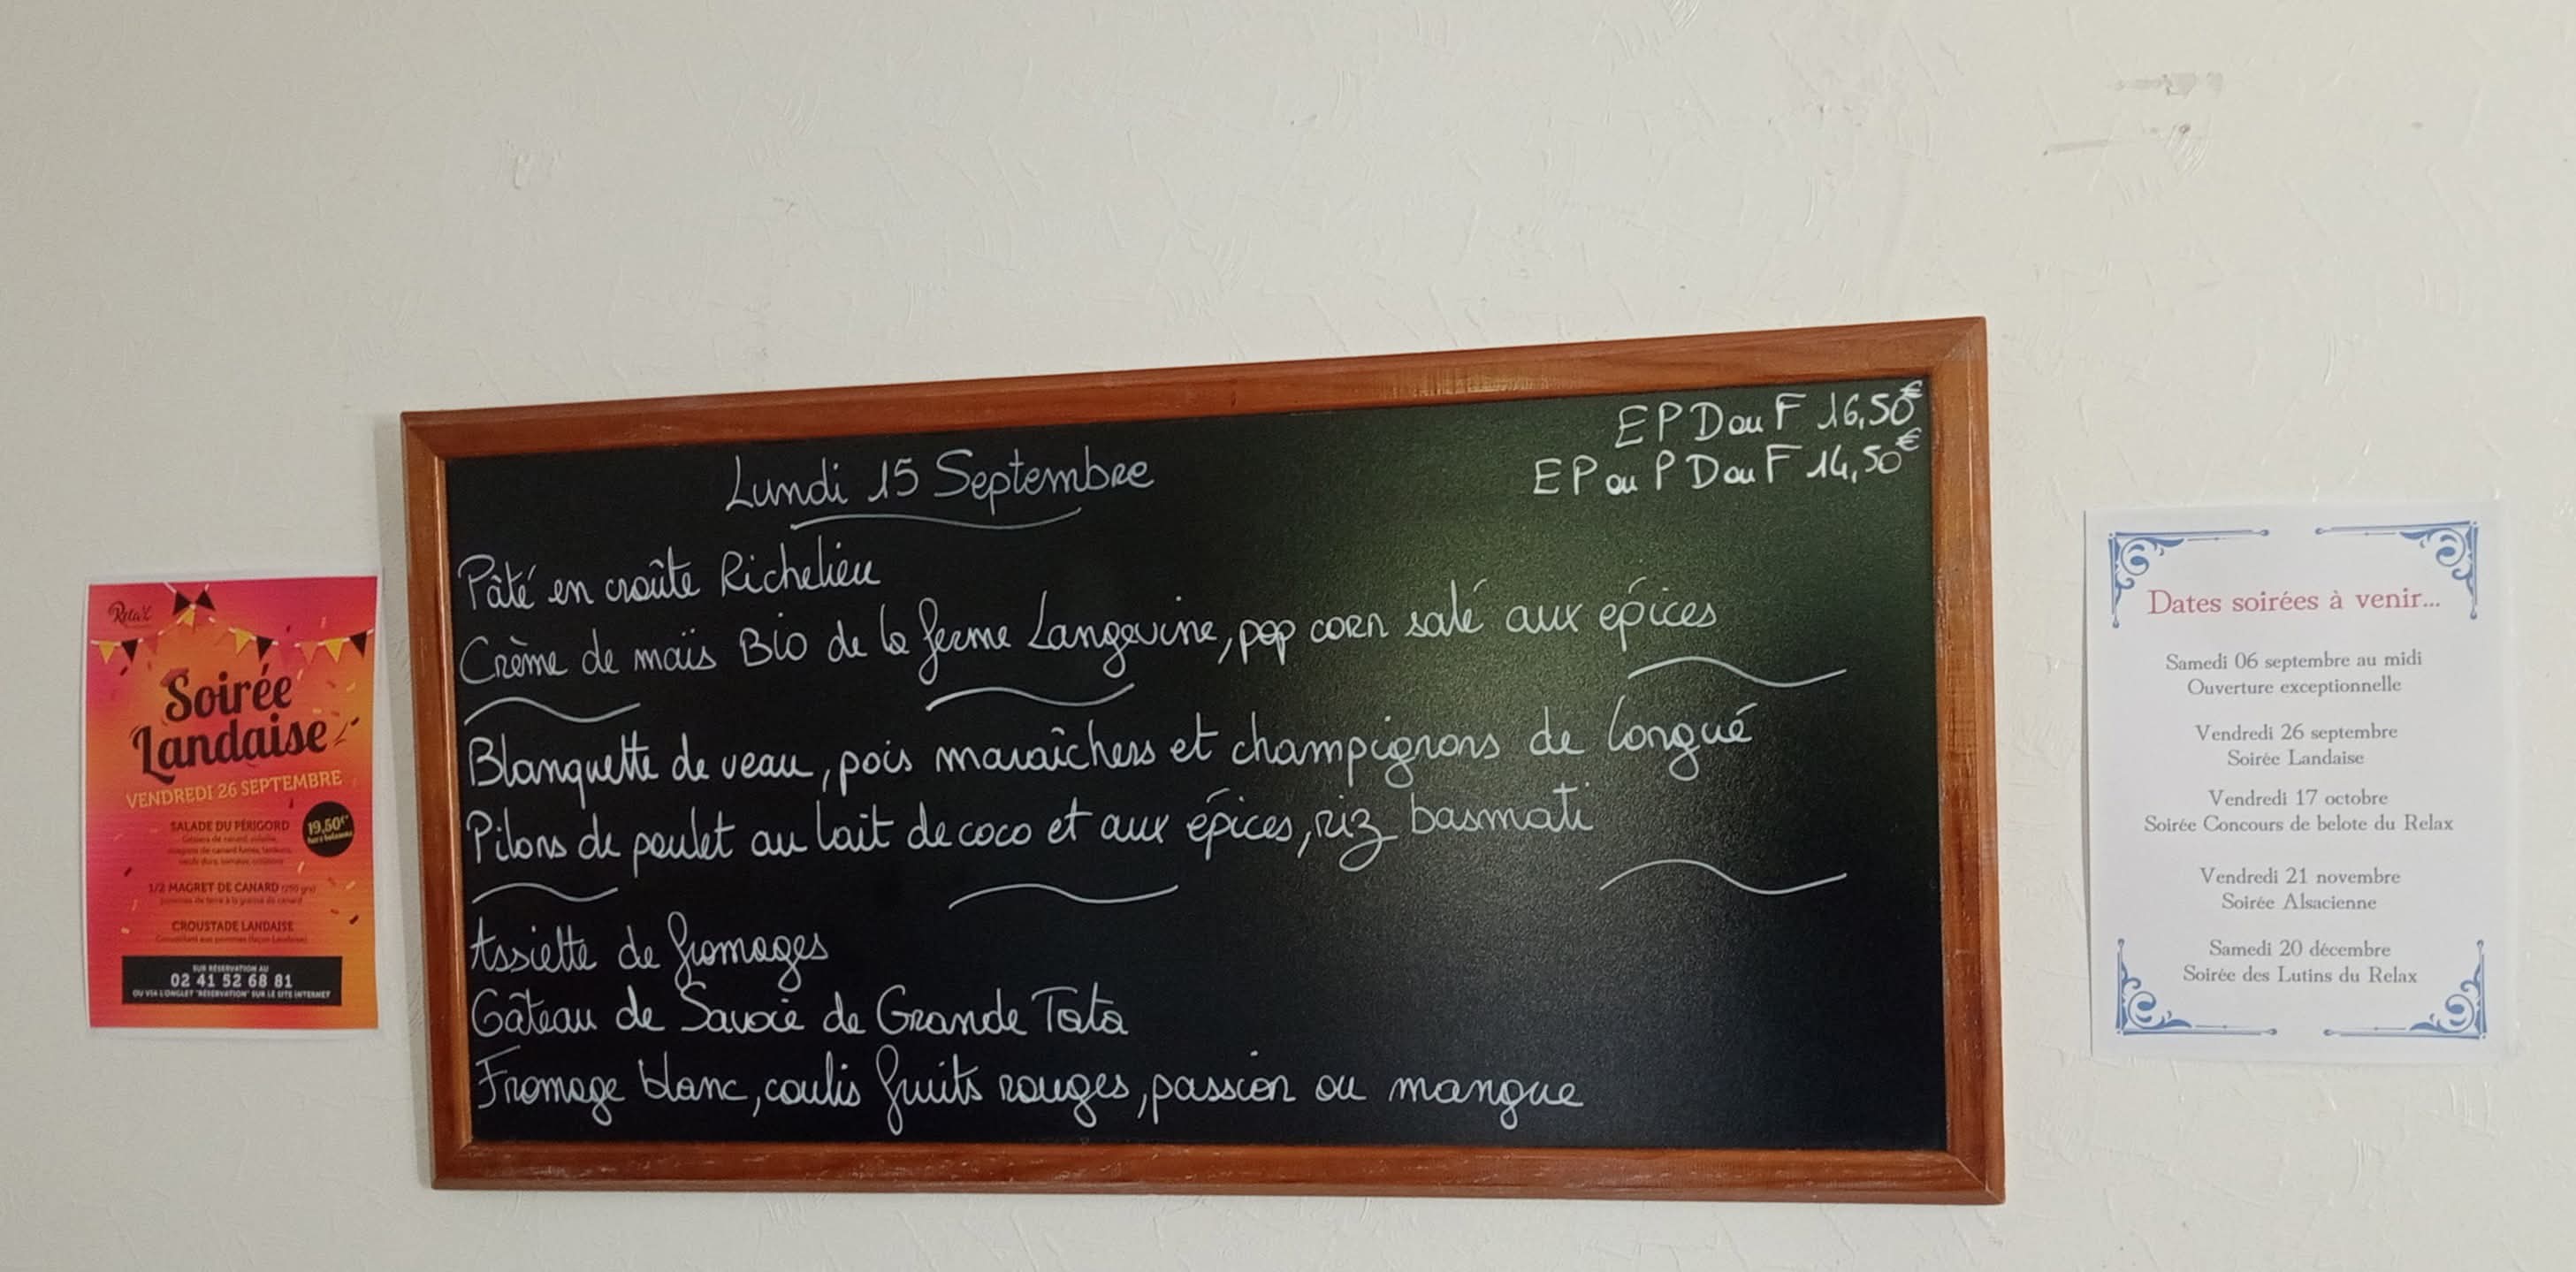 Relax
Soirée
Landaise
VENDREDI 26 SEPTEMBRE
SALADE DU PÉRIGORD
19,50€
1/2 MAGRET DE CANARD
CROUSTADE LANDAISE
SUR RÉSERVATION AU
02 41 52 68 81
OU VIA L'ONGLET "RÉSERVATION" SUR LE SITE INTERNET
EPD ou F 16,50€
EP ou PD ou F 14,50€
Lundi 15 Septembre
Pâté en croûte Richelieu
Crème de maïs Bio de la ferme Langevine, pop corn salé aux épices
Blanquette de veau, pois maraîchers et champignons de Longué
Pilons de poulet au lait de coco et aux épices, riz basmati
Assiette de fromages
Gâteau de Savoie de Grande Tata
Fromage blanc, coulis fruits rouges, passion ou mangue
Dates soirées à venir...
Samedi 06 septembre au midi
Ouverture exceptionnelle
Vendredi 26 septembre
Soirée Landaise
Vendredi 17 octobre
Soirée Concours de belote du Relax
Vendredi 21 novembre
Soirée Alsacienne
Samedi 20 décembre
Soirée des Lutins du Relax